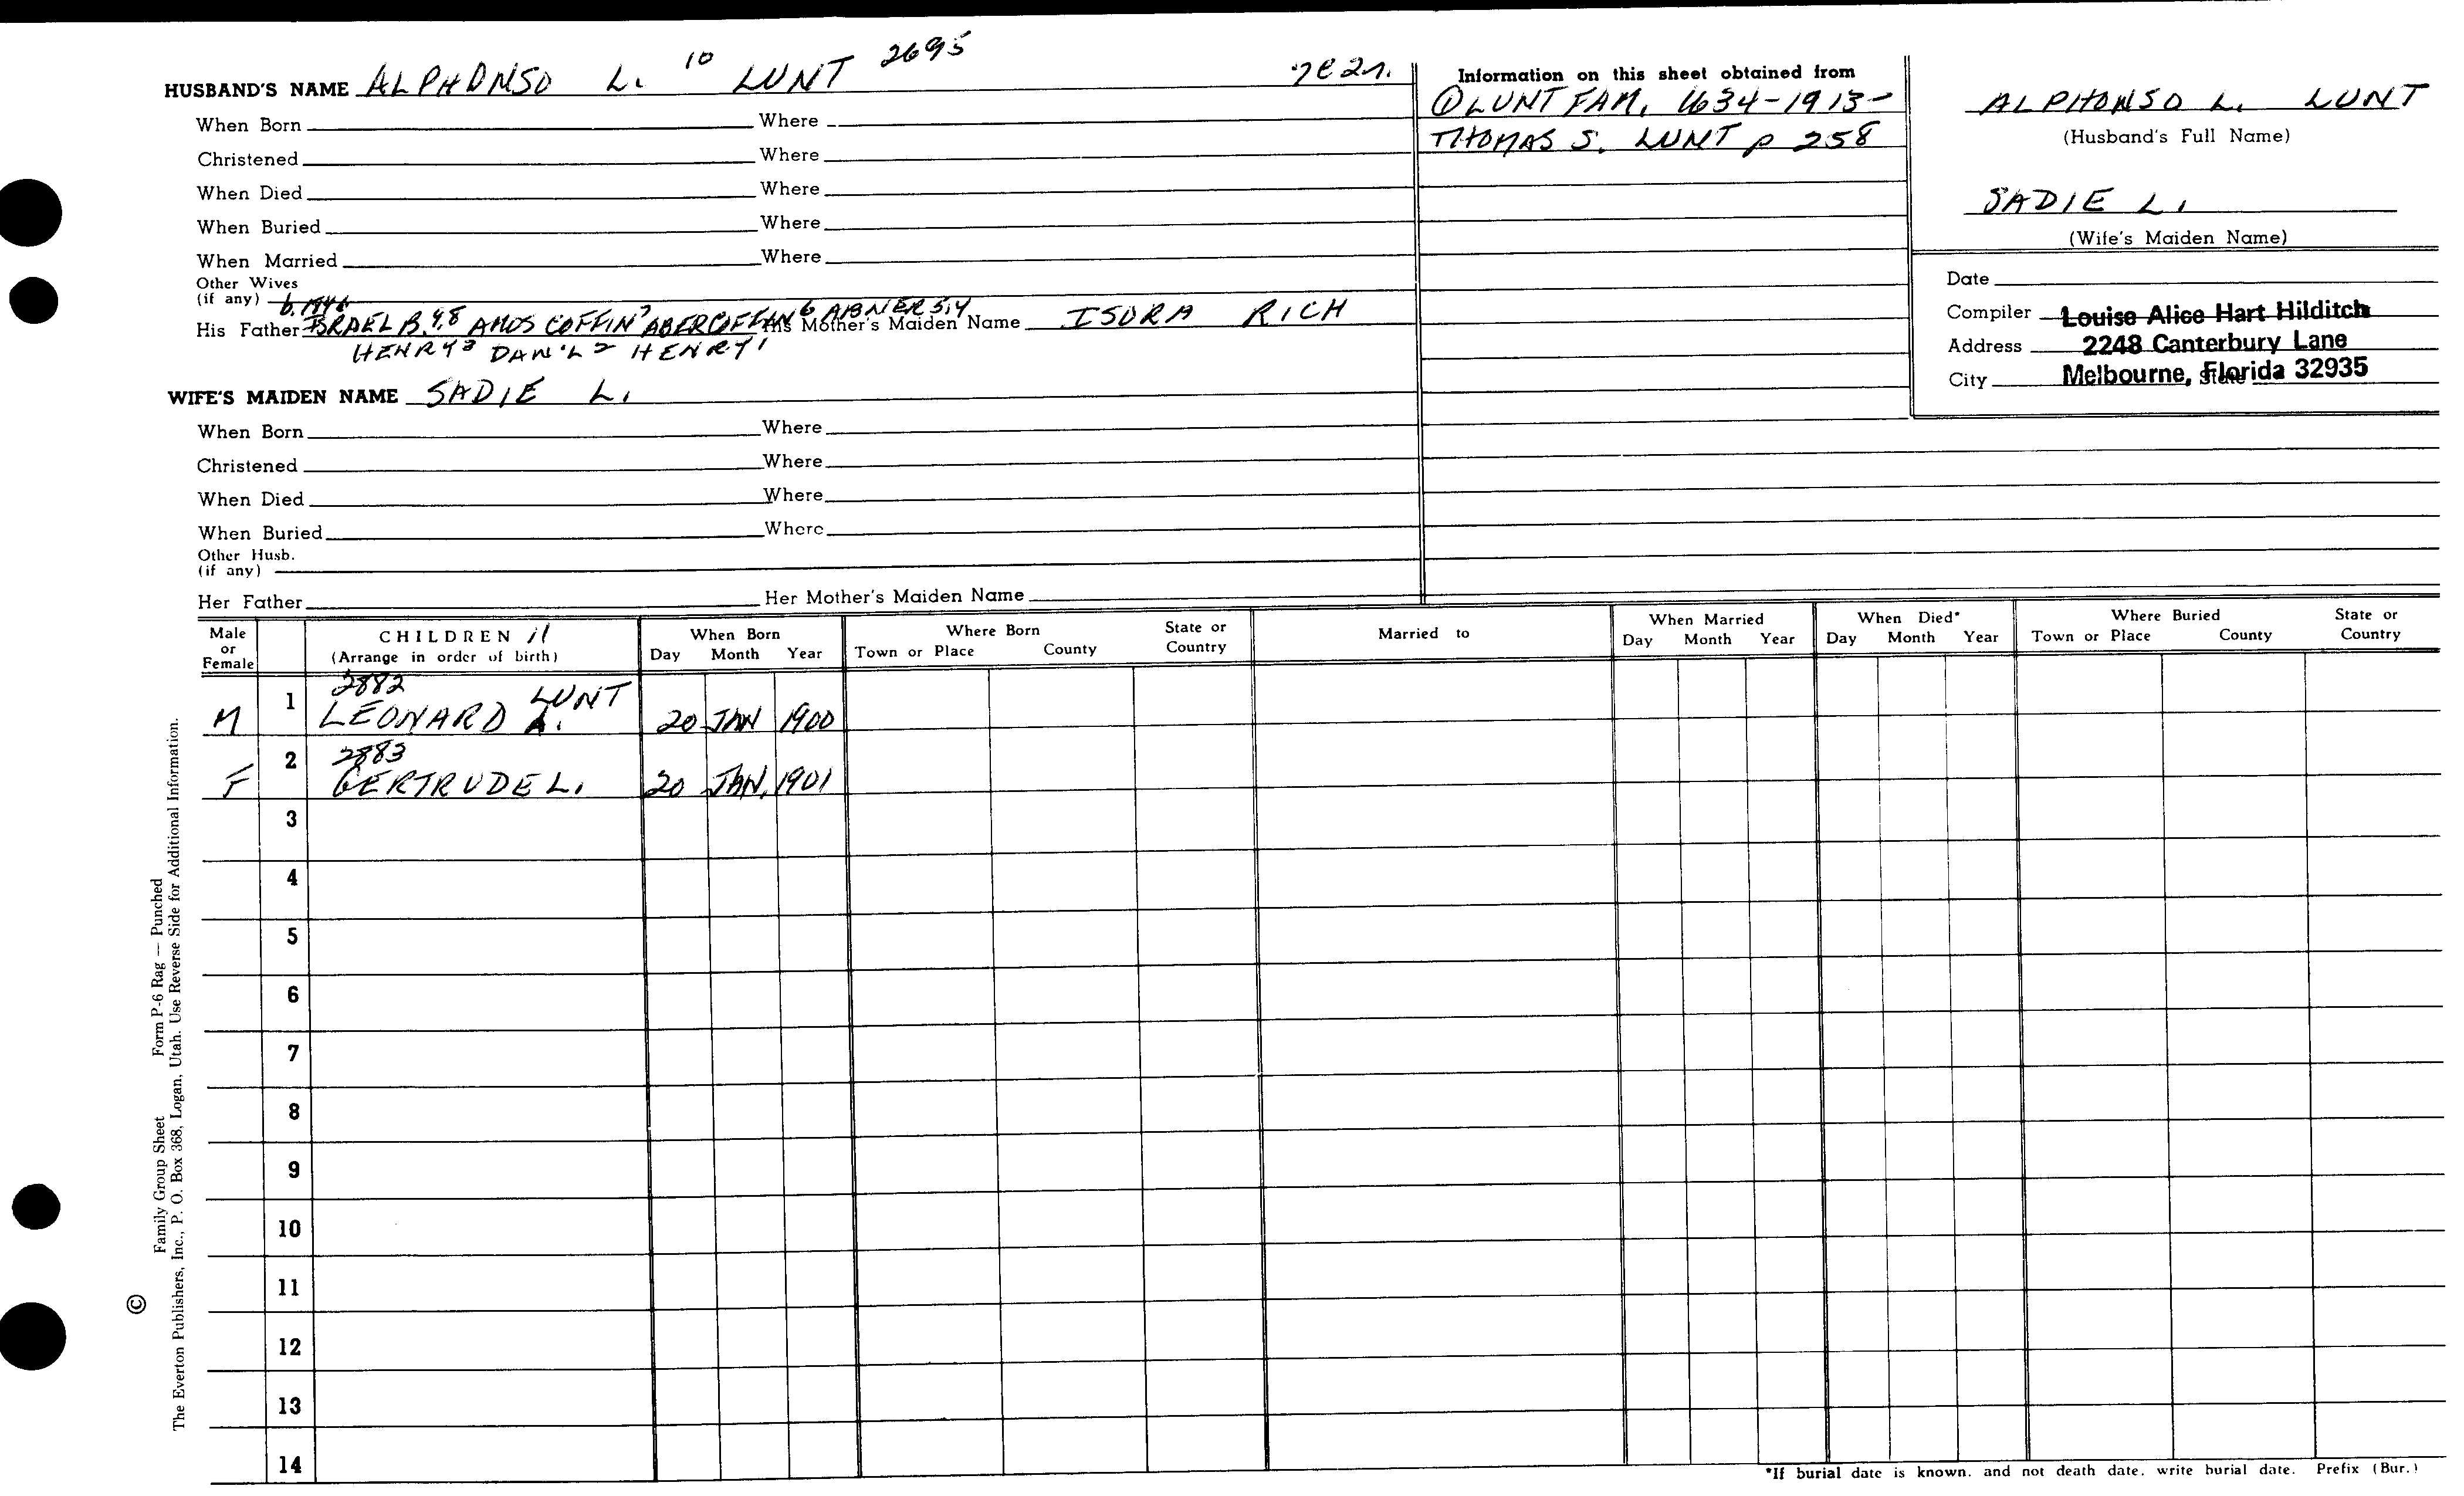 HUSBAND'S NAME ALPHONSO L. 10 LUNT 2695
When Born Where
Christened Where
When Died Where
When Buried Where
When Married Where
Other Wives
(if any)
His Father ISRAEL B. 9,8 AMOS COFFIN 7 ABERCOFFIN 6 ABNER 5,4 His Mother's Maiden Name ISORA RICH
HENRY 3 DAN'L 2 HENRY 1
WIFE'S MAIDEN NAME SADIE L.
When Born Where
Christened Where
When Died Where
When Buried Where
Other Husb.
(if any)
Her Father Her Mother's Maiden Name
Information on this sheet obtained from
① LUNT FAM, 1634-1913-
THOMAS S. LUNT p 258
ALPHONSO L. LUNT
(Husband's Full Name)
SADIE L.
(Wife's Maiden Name)
Date
Compiler Louise Alice Hart Hilditch
Address 2248 Canterbury Lane
City Melbourne, Florida 32935 State
Male or Female
CHILDREN 11
(Arrange in order of birth)
When Born
Day Month Year
Where Born
Town or Place County State or Country
Married to
When Married
Day Month Year
When Died*
Day Month Year
Where Buried
Town or Place County State or Country
2882
M 1 LEONARD A. LUNT 20 JAN 1900
2883
F 2 GERTRUDE L. 20 JAN, 1901
3
4
5
6
7
8
9
10
11
12
13
14
*If burial date is known, and not death date, write burial date. Prefix (Bur.)
Family Group Sheet Form P-6 Rag — Punched
© The Everton Publishers, Inc., P. O. Box 368, Logan, Utah. Use Reverse Side for Additional Information.